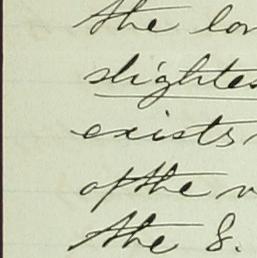 the
slightes
exists
of the
the S.